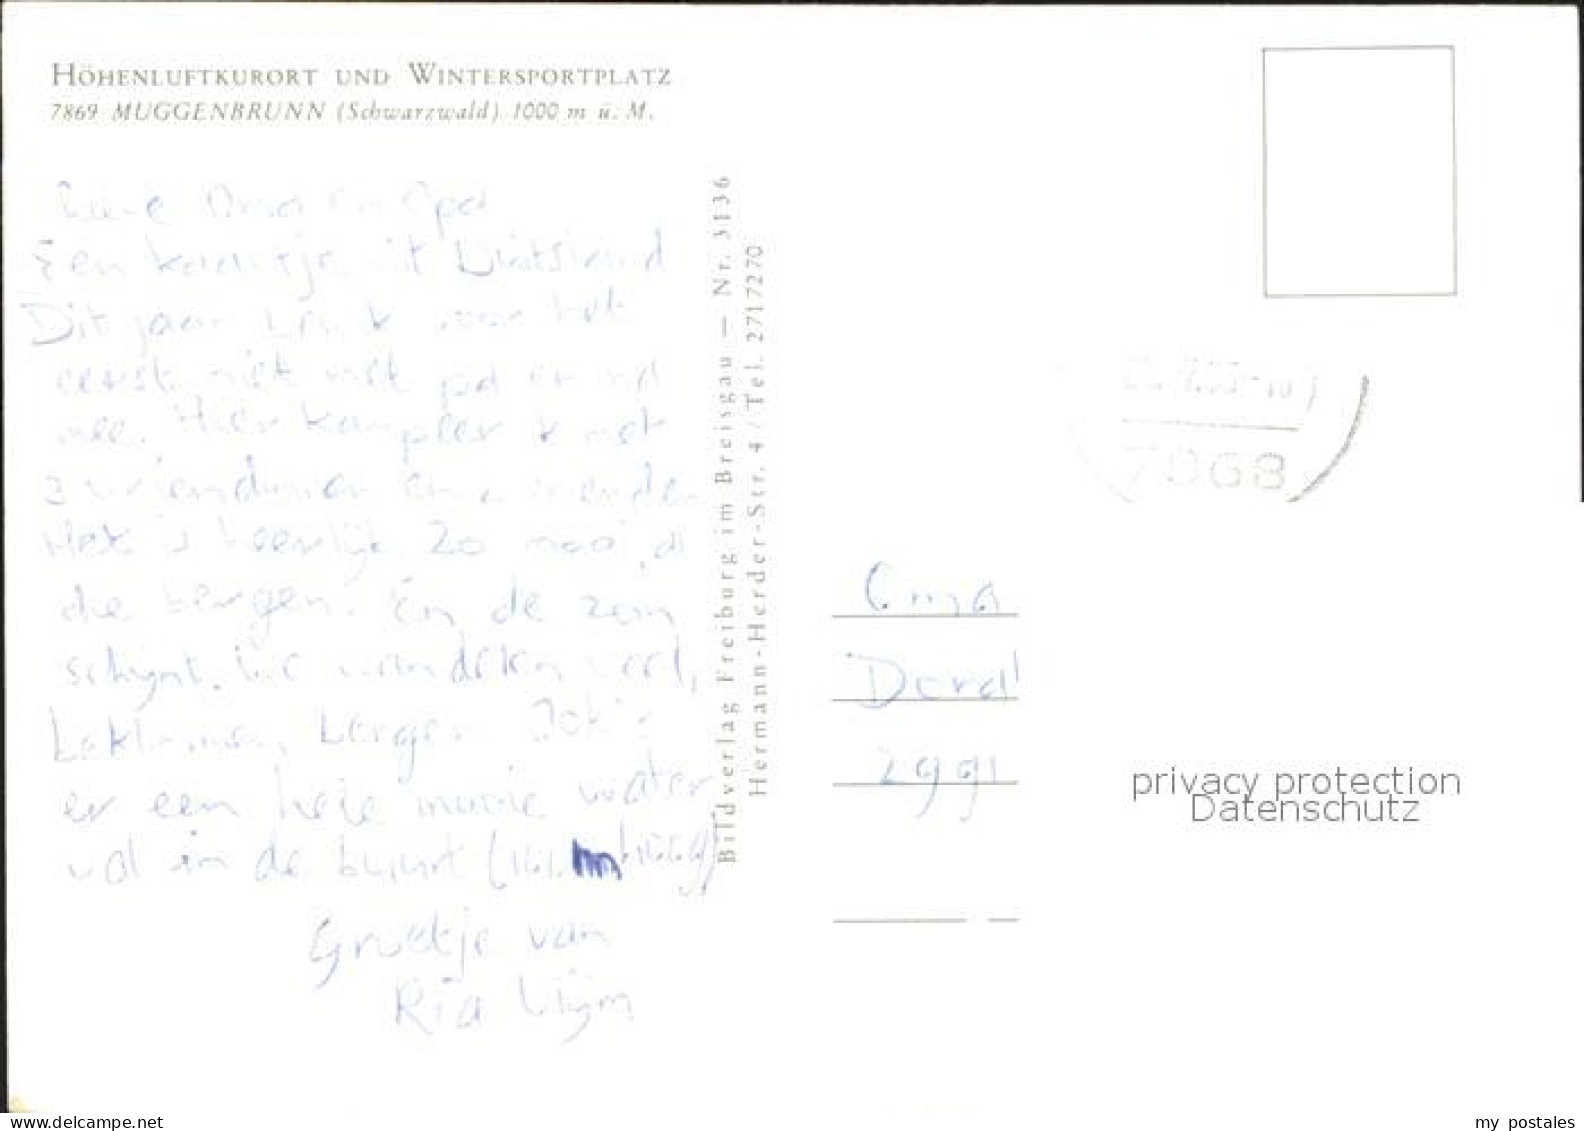 HÖHENLUFTKURORT UND WINTERSPORTPLATZ
7869 MUGGENBRUNN (Schwarzwald) 1000 m ü. M.
Lieve Oma en Opa
Een kaartje uit Duitsland
Dit jaar ben ik voor het
eerst niet met pa en ma
mee. Hier kampeer ik met
2 vriendinnen en vrienden
Het is heerlijk. Zo mooi, al
die bergen. En de zon
schijnt. We wandelen veel,
beklimmen bergen. Ook is
er een hele mooie water
val in de buurt
Groetje van
Ria
Bildverlag Freiburg im Breisgau — Nr. 3136
Hermann-Herder-Str. 4 / Tel. 2717270
7868
2991
privacy protection
Datenschutz
my postales
delcampe.net